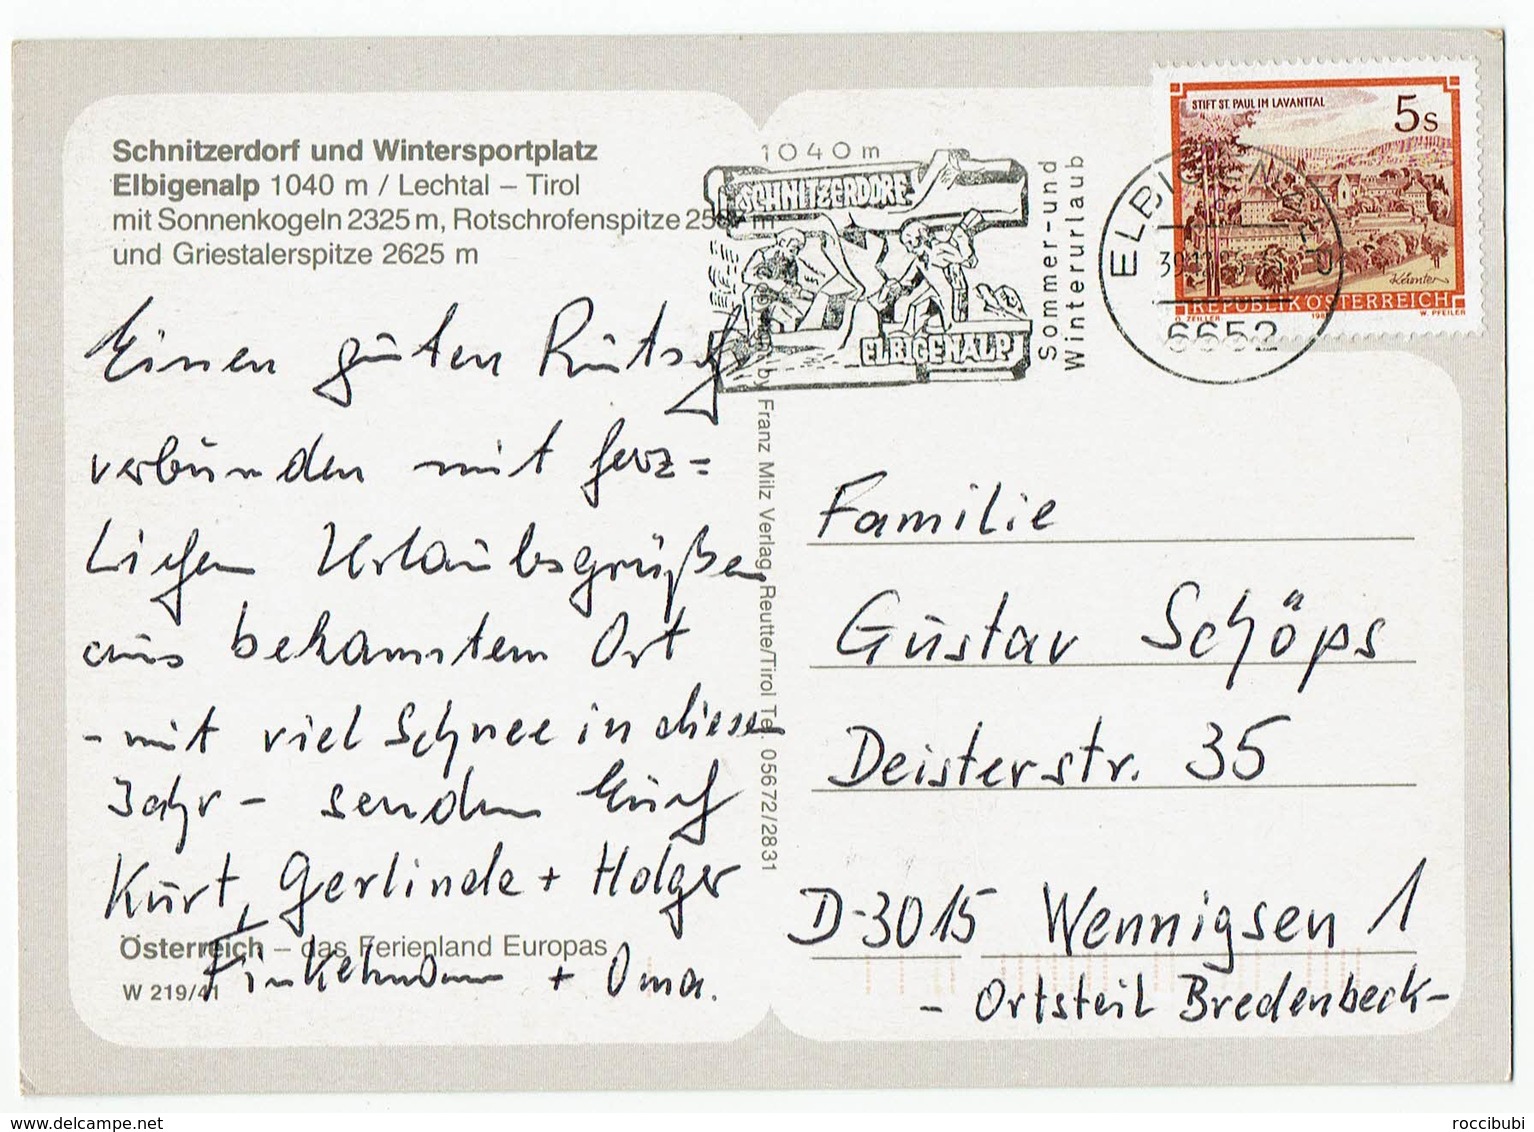 Schnitzerdorf und Wintersportplatz
Elbigenalp 1040 m / Lechtal – Tirol
mit Sonnenkogeln 2325 m, Rotschrofenspitze m
und Griestalerspitze 2625 m
Einen guten Rutsch
verbunden mit herz=
lichen Urlaubsgrüßen
aus bekanntem Ort
- mit viel Schnee in diesem
Jahr - senden Euch
Kurt, Gerlinde + Holger
Finkelmann + Oma.
Österreich – das Ferienland Europas
W 219/41
by Franz Milz Verlag, Reutte/Tirol Tel. 05672/2831
1040m
SCHNITZERDORF
ELBIGENALP
Sommer-und
Winterurlaub
ELBIGENALP
6652
STIFT ST. PAUL IM LAVANTTAL
5s
Kärnten
REPUBLIK ÖSTERREICH
O. ZEILLER
W. PFEILER
Familie
Gustav Schöps
Deisterstr. 35
D-3015 Wennigsen 1
- Ortsteil Bredenbeck-
delcampe.net
roccibubi